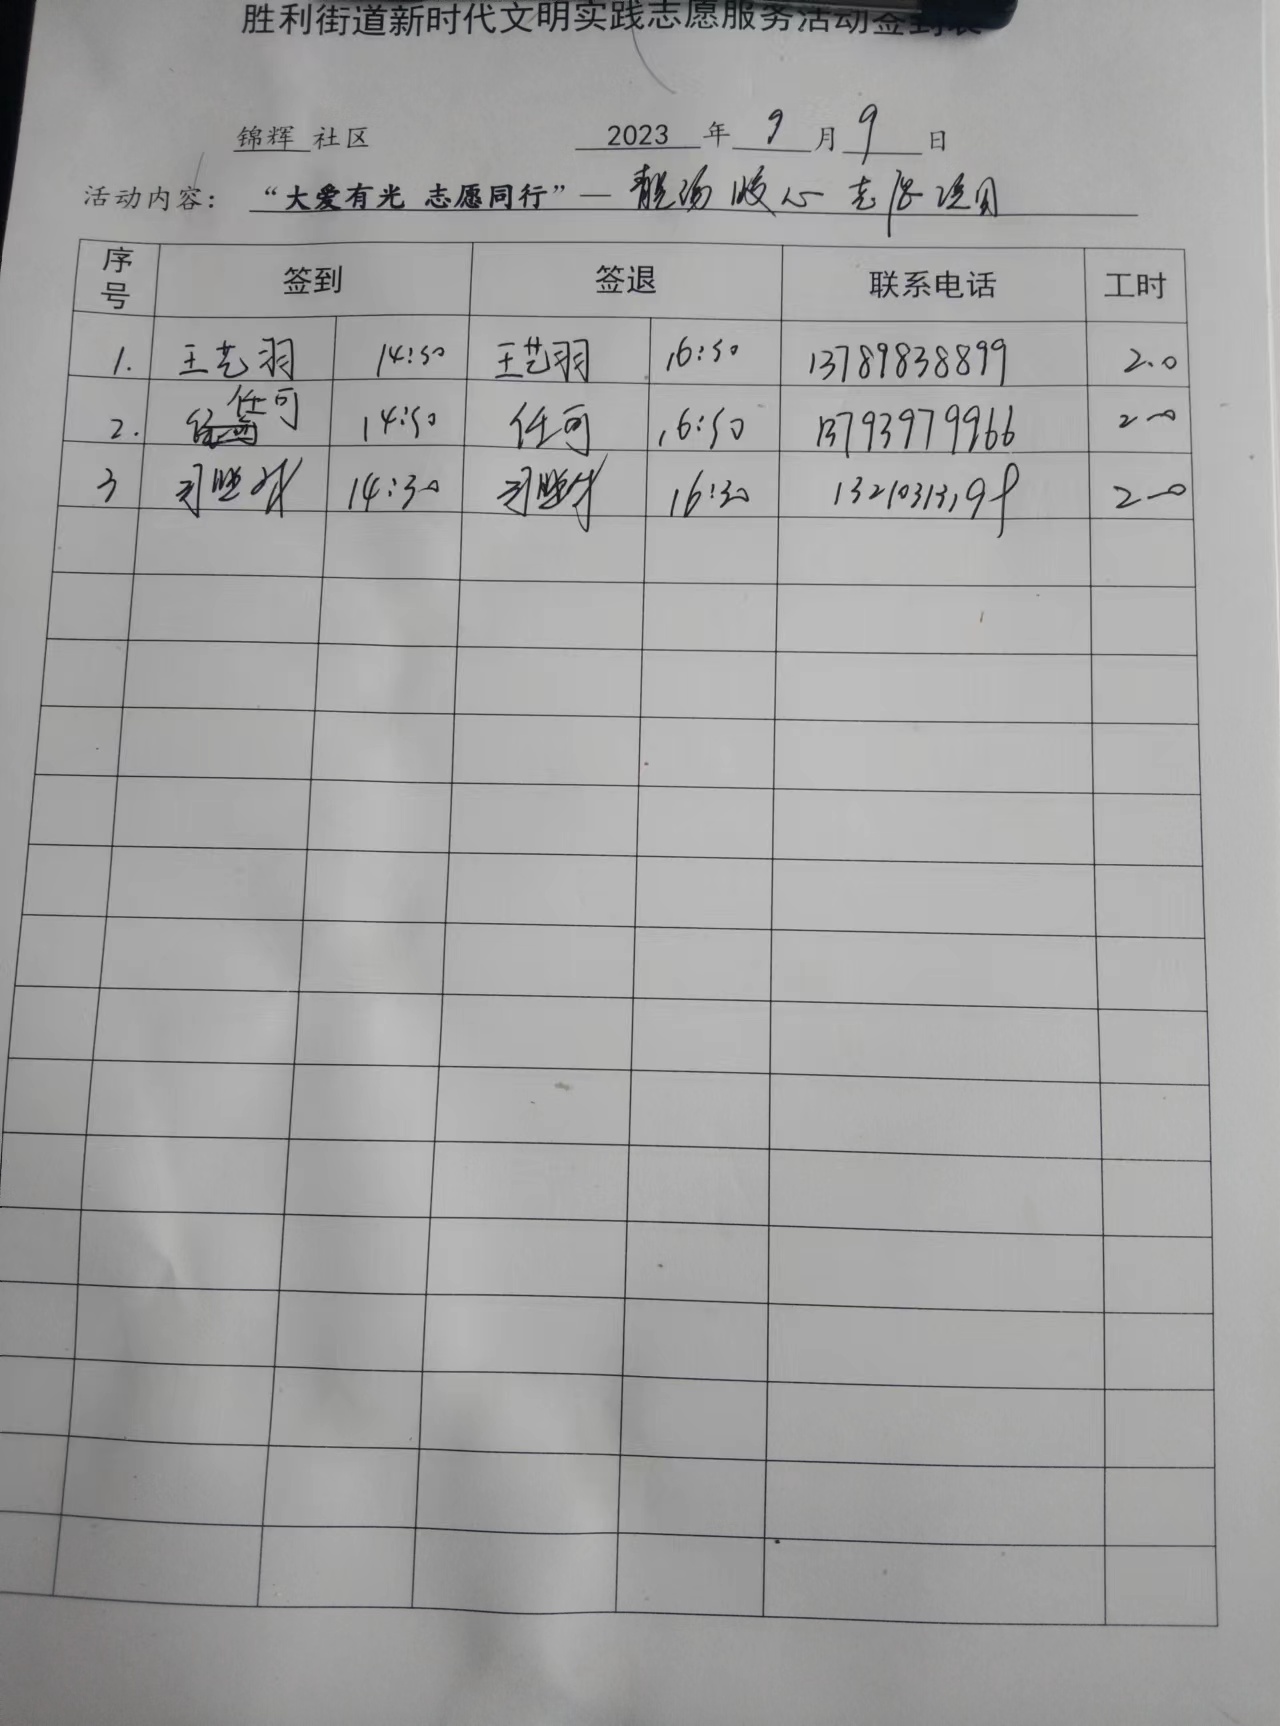 胜利街道新时代文明实践志愿服务活动签到表
锦辉 社区 2023 年 9 月 9 日
活动内容： “大爱有光 志愿同行”— 心 志
序号 签到 签退 联系电话 工时
1. 王艺羽 14:50 王艺羽 16:50 13789838899 2.0
2. 任可 14:50 任可 16:50 13793979966 2.0
3 14:30 16:30 2.0